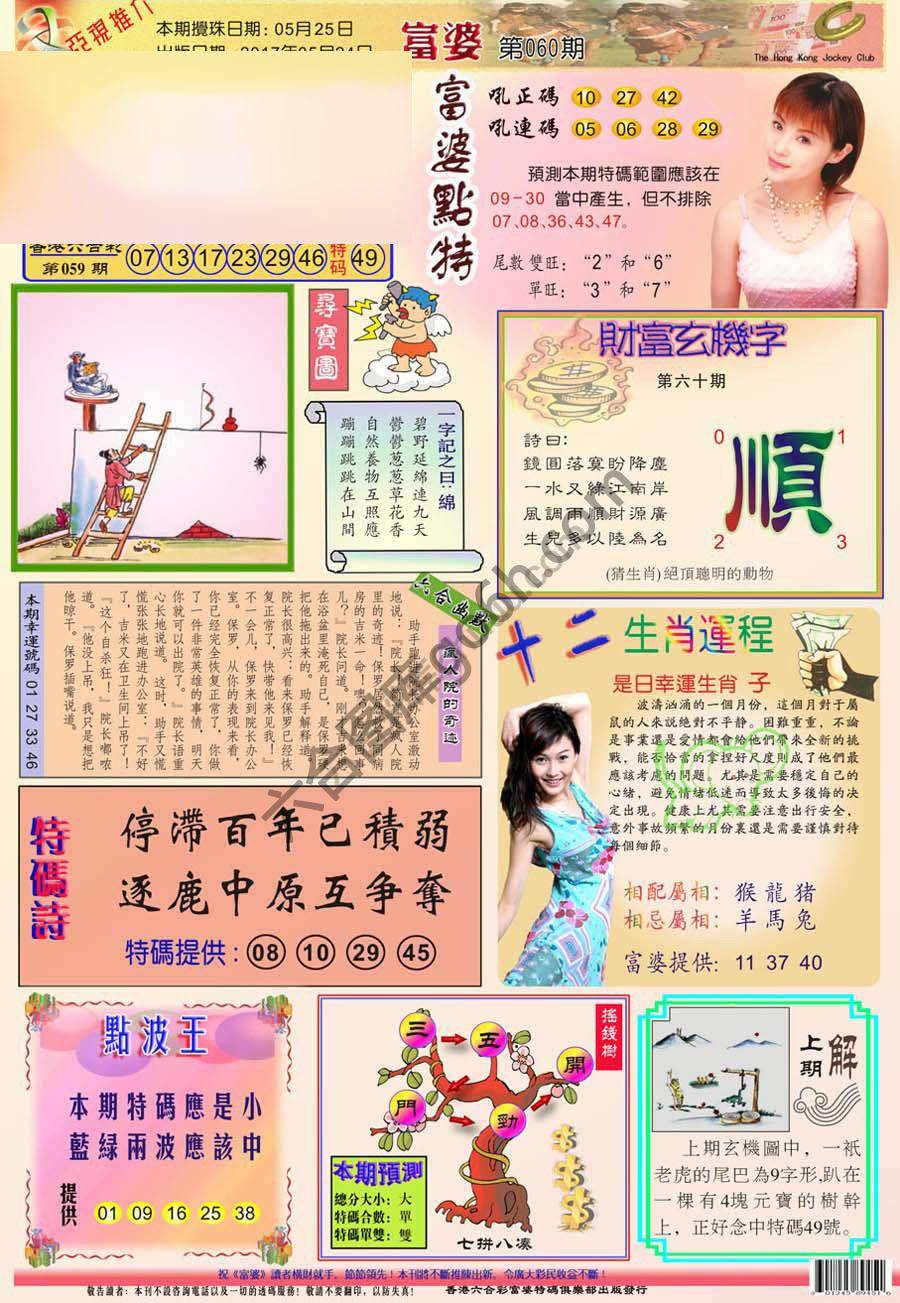 本期攪珠日期: 05月25日
富婆 第060期
The Hong Kong Jockey Club
富婆點特
吼正碼 10 27 42
吼連碼 05 06 28 29
預測本期特碼範圍應該在
09-30 當中產生, 但不排除
07、08、36、43、47。
尾數雙旺: “2”和“6”
單旺: “3”和“7”
香港六合彩
第059期
07 13 17 23 29 46 特码 49
尋寶圖
一字記之曰:綿
碧野延綿連九天
鬱鬱蔥蔥草花香
自然養物互照應
蹦蹦跳跳在山間
財富玄機字
第六十期
詩曰:
鏡圓落寞盼降塵
一水又綠江南岸
風調雨順財源廣
生兒多以陸為名
順
0 1
2 3
(猜生肖)絕頂聰明的動物
六合幽默
瘋人院的奇迹
助手跑進院長办公室激动
地说:“院长！简直是瘋人院
里的奇迹！保罗居然救了同病
房的吉米一命！”“噢？怎么回
儿？”院长问道。“刚才吉米想
在浴盆里淹死自己，是保罗
把他拖出来的。”助手解释道。
院长很高兴:“看来保罗已经恢
复正常了，快带他来见我！”
不一会儿，保罗来到院长办公
室。“保罗，从你的表现来看，
你已经完全恢复正常了，你做
了一件非常英雄的事情，明天
你就可以出院了。”院长语重
心长地说。这时，助手又慌
慌张张地跑进办公室:“不好
了，吉米又在卫生间上吊了！”
“这个自杀狂！”院长嘟哝
道。“他没上吊，我只是想把
他晾干。”保罗插嘴说道。
本期幸運號碼 01 27 33 46
十二生肖運程
是日幸運生肖 子
波濤洶涌的一個月份，這個月對于屬
鼠的人來説絶對不平静。困難重重，不論
是事業還是愛情都會給他們帶來全新的挑
戰，能否恰當的拿捏好尺度則成了他們最
應該考慮的問題。尤其是需要穩定自己的
心緒，避免情緒低迷而導致太多後悔的决
定出現。健康上尤其需要注意出行安全，
意外事故頻繁的月份裏還是需要謹慎對待
每個細節。
相配屬相: 猴龍猪
相忌屬相: 羊馬兔
富婆提供: 11 37 40
特碼詩
停滯百年已積弱
逐鹿中原互爭奪
特碼提供: 08 10 29 45
點波王
本期特碼應是小
藍綠兩波應該中
提供 01 09 16 25 38
搖錢樹
三 五 開
門 勁
本期預測
總分大小: 大
特碼合數: 單
特碼單雙: 雙
七拼八湊
上期解
上期玄機圖中，一衹
老虎的尾巴為9字形,趴在
一棵有4塊元寶的樹幹
上，正好念中特碼49號。
祝《富婆》讀者橫財就手，節節領先！本刊將不斷推陳出新，令廣大彩民收益不斷！
敬告讀者: 本刊不設咨詢電話以及一切的透碼服務！敬請不要翻印，以防失真！
香港六合彩富婆特碼俱樂部出版發行